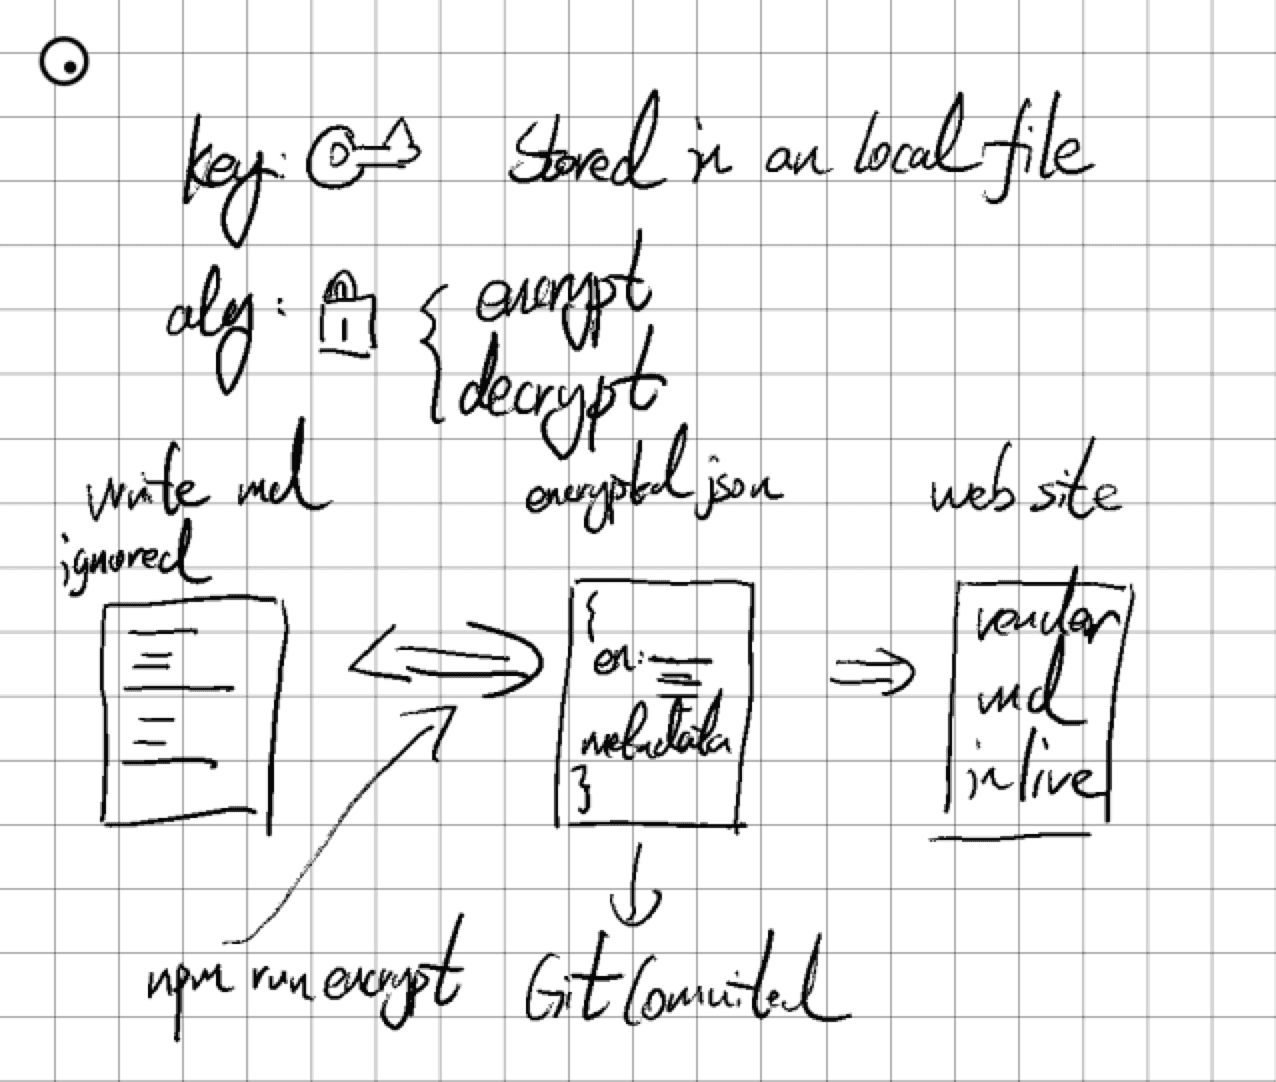 key: Stored in an local file
alg: { encrypt
decrypt
write md
ignored
encrypted json
web site
{
en:
metadata
}
render
md
in live
npm run encrypt
Git Commited